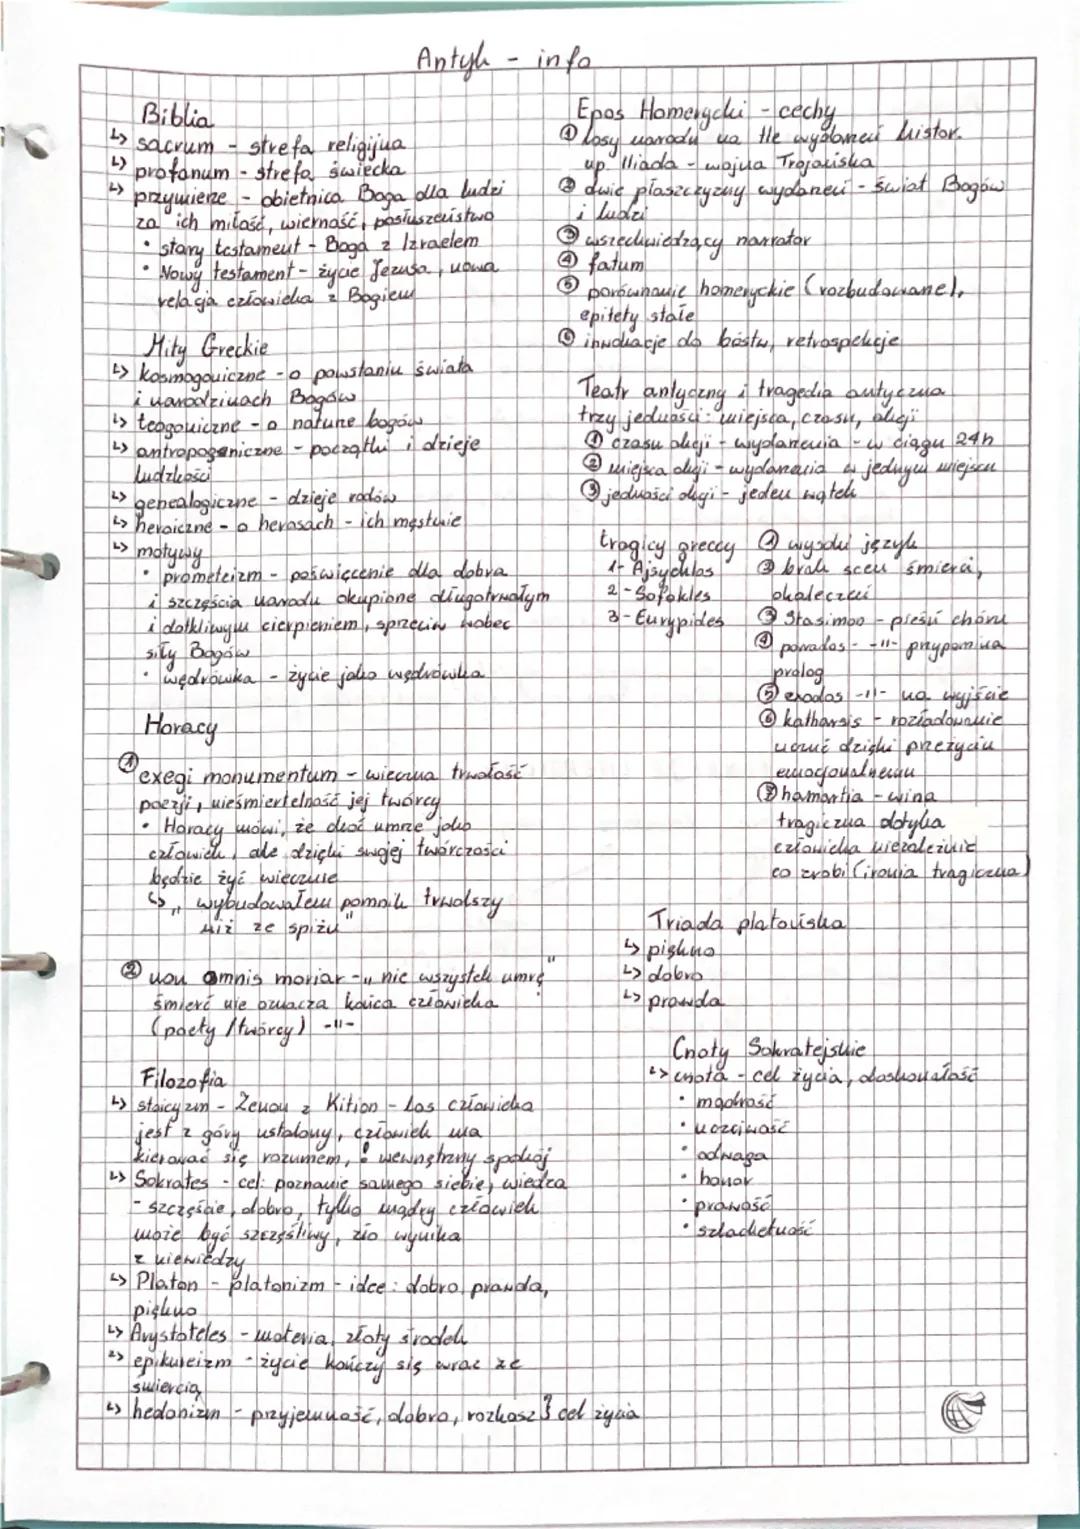 Antyk - info
Biblia
↳ sacrum - strefa religijna
↳ profanum - strefa świecka
↳ przymierze - obietnica Boga dla ludzi
za ich miłość, wierność, posłuszeństwo
• stary testament - Boga z Izraelem
• Nowy testament - życie Jezusa, nowa
relacja człowieka z Bogiem
Mity Greckie
↳ kosmogoniczne - o powstaniu świata
i narodzinach Bogów
↳ teogoniczne - o naturze bogów
↳ antropogeniczne - początki i dzieje
ludzkości
↳ genealogiczne - dzieje rodów
↳ heroiczne - o herosach - ich męstwie
↳ motywy
• prometeizm - poświęcenie dla dobra
i szczęścia narodu okupione długotrwałym
i dotkliwym cierpieniem, sprzeciw wobec
siły Bogów
• wędrówka - życie jako wędrówka
Horacy
① exegi monumentum - wieczna trwałość
poezji, nieśmiertelność jej twórcy
• Horacy mówi, że choć umrze jako
człowiek, ale dzięki swojej twórczości
będzie żyć wiecznie
↳ „wybudowałem pomnik trwalszy
niż ze spiżu"
② non omnis moriar - „nie wszystek umrę"
śmierć nie oznacza końca człowieka
(poety / twórcy) -||-
Filozofia
↳ stoicyzm - Zenon z Kition - los człowieka
jest z góry ustalony, człowiek ma
kierować się rozumem, ! wewnętrzny spokój
↳ Sokrates - cel: poznanie samego siebie, wiedza
- szczęście, dobro, tylko mądry człowiek
może być szczęśliwy, zło wynika
z niewiedzy
↳ Platon - platonizm - idee: dobro, prawda,
piękno
↳ Arystoteles - materia, złoty środek
↳ epikureizm - życie kończy się wraz ze
śmiercią
↳ hedonizm - przyjemność, dobro, rozkosz } cel życia
Epos Homerycki - cechy
① losy narodu na tle wydarzeń histor.
np. Iliada - wojna Trojańska
② dwie płaszczyzny wydarzeń - świat Bogów
i ludzi
③ wszechwiedzący narrator
④ fatum
⑤ porównanie homeryckie (rozbudowane),
epitety stałe
⑥ inwokacje do bóstw, retrospekcje
Teatr antyczny i tragedia antyczna
trzy jedności: miejsca, czasu, akcji
① czasu akcji - wydarzenia - w ciągu 24h
② miejsca akcji - wydarzenia w jednym miejscu
③ jedności akcji - jeden wątek
tragicy greccy
1 - Ajschylos
2 - Sofokles
3 - Eurypides
① wysoki język
② brak scen śmierci,
okaleczeń
③ Stasimon - pieśń chóru
④ parados - -||- przypomina
prolog
⑤ exodos -||- na wyjście
⑥ katharsis - rozładowanie
uczuć dzięki przeżyciu
emocjonalnemu
⑦ hamartia - wina
tragiczna dotyka
człowieka niezależnie
co zrobi (ironia tragiczna)
Triada platońska
↳ piękno
↳ dobro
↳ prawda
Cnoty Sokratejskie
↳ cnota - cel życia, doskonałość
• mądrość
• uczciwość
• odwaga
• honor
• prawość
• szlachetność